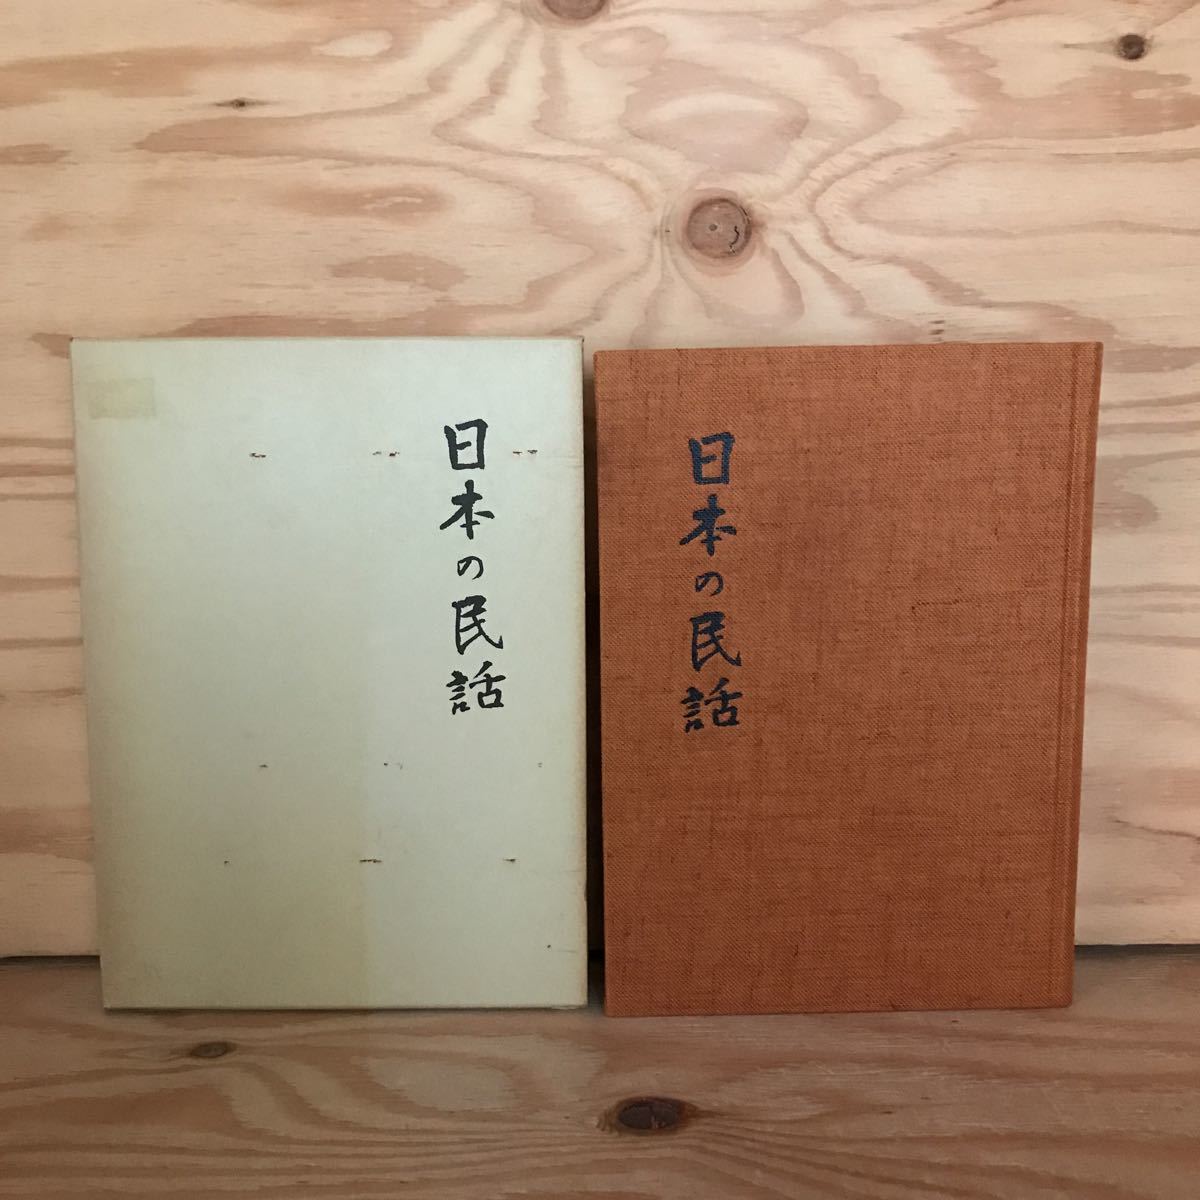 日本の民話
日本の民話